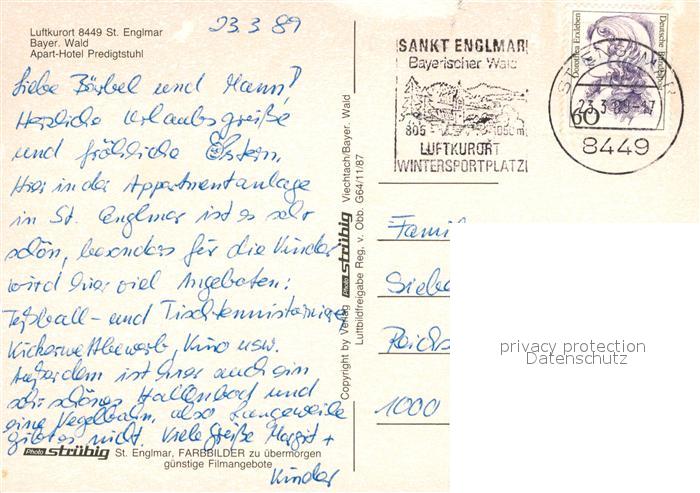 Luftkurort 8449 St. Englmar
Bayer. Wald
Apart-Hotel Predigtstuhl
23.3.89
Liebe Bärbel und Mann!
Herzliche Urlaubsgrüße
und fröhliche Ostern.
Hier in der Appartmentanlage
in St. Englmar ist es sehr
schön, besonders für die Kinder
wird hier viel Angeboten:
Fußball- und Tischtennisturniere
Kickerwettbewerb, Kino usw.
Außerdem ist hier auch ein
sehr schönes Hallenbad und
eine Kegelbahn, also Langeweile
gibt es nicht. Viele Grüße Margit +
Kinder
Photo strübig St. Englmar, FARBBILDER zu übermorgen
günstige Filmangebote
Copyright by Verlag Photo strübig Viechtach/Bayer. Wald
Luftbildfreigabe Reg. v. Obb. G64/11/87
SANKT ENGLMAR
Bayerischer Wald
805 - 1050m
LUFTKURORT
WINTERSPORTPLATZ
Dorothea Erxleben
Deutsche Bundespost
60
23.3.89-17
8449
Famil
Siebe
Reichs
1000
privacy protection
Datenschutz